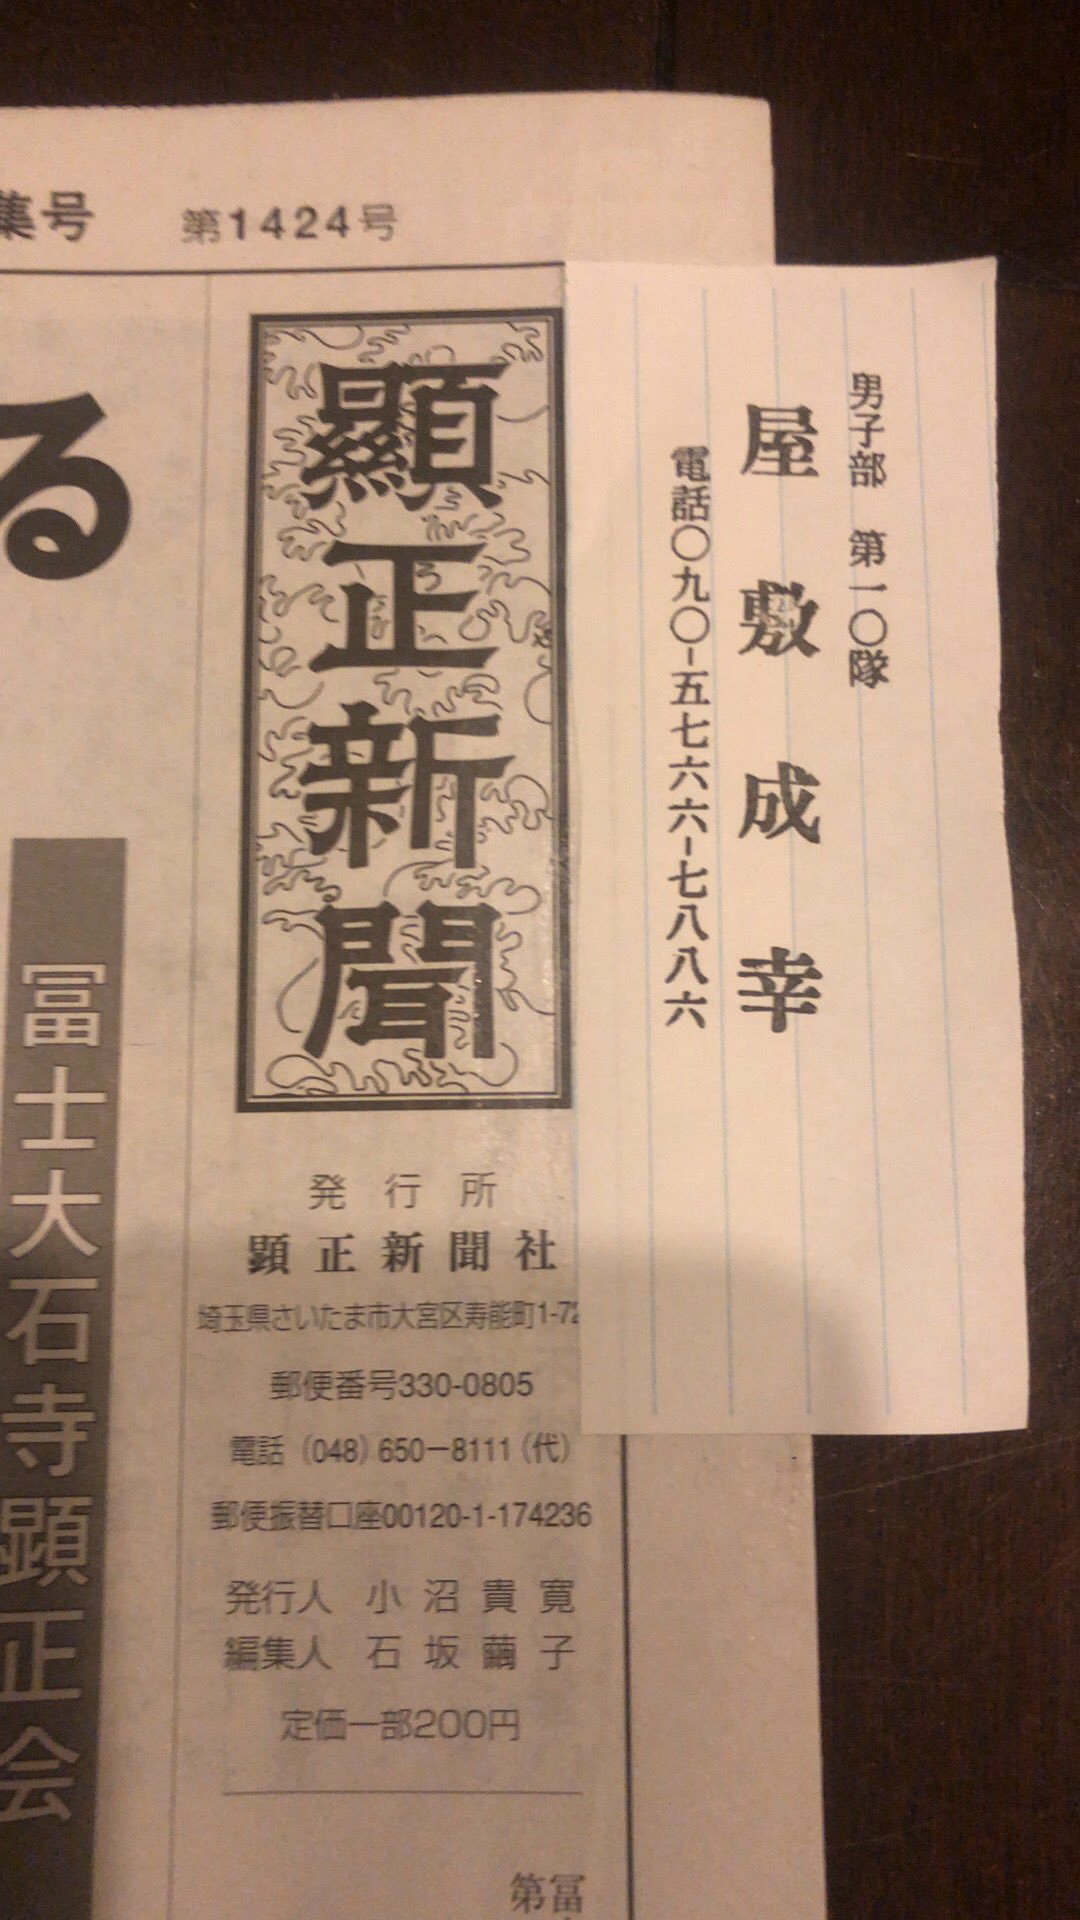 集号 第1424号
男子部 第一〇隊
屋敷成幸
電話〇九〇-五七六六-七八八六
顯正新聞
発行所
顕正新聞社
埼玉県さいたま市大宮区寿能町1-72
郵便番号330-0805
電話(048)650-8111(代)
郵便振替口座00120-1-174236
発行人 小沼貴寛
編集人 石坂繭子
定価一部200円
冨
第
る
冨士大石寺顕正会